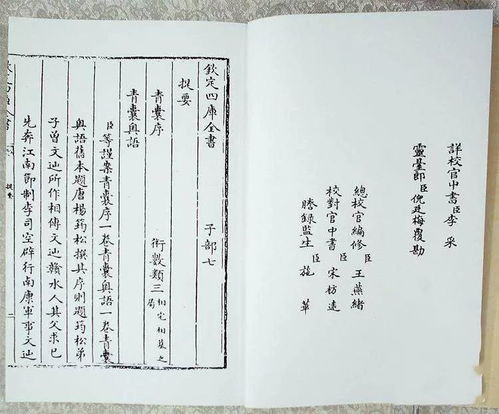 詳校官中書臣李采
靈臺郎臣倪廷梅覆勘
總校官編修臣王燕緒
校對官中書臣宋枋遠
謄錄監生臣施華
欽定四庫全書 子部七
提要
青囊序 術數類三 相宅相墓之屬
青囊奧語
臣等謹案青囊序一卷青囊奧語一卷青囊
奧語舊本題唐楊筠松撰其序則題筠松弟
子曾文辿所作相傳文辿贛水人其父求已
先奔江南節制李司空辟行南康軍事文辿